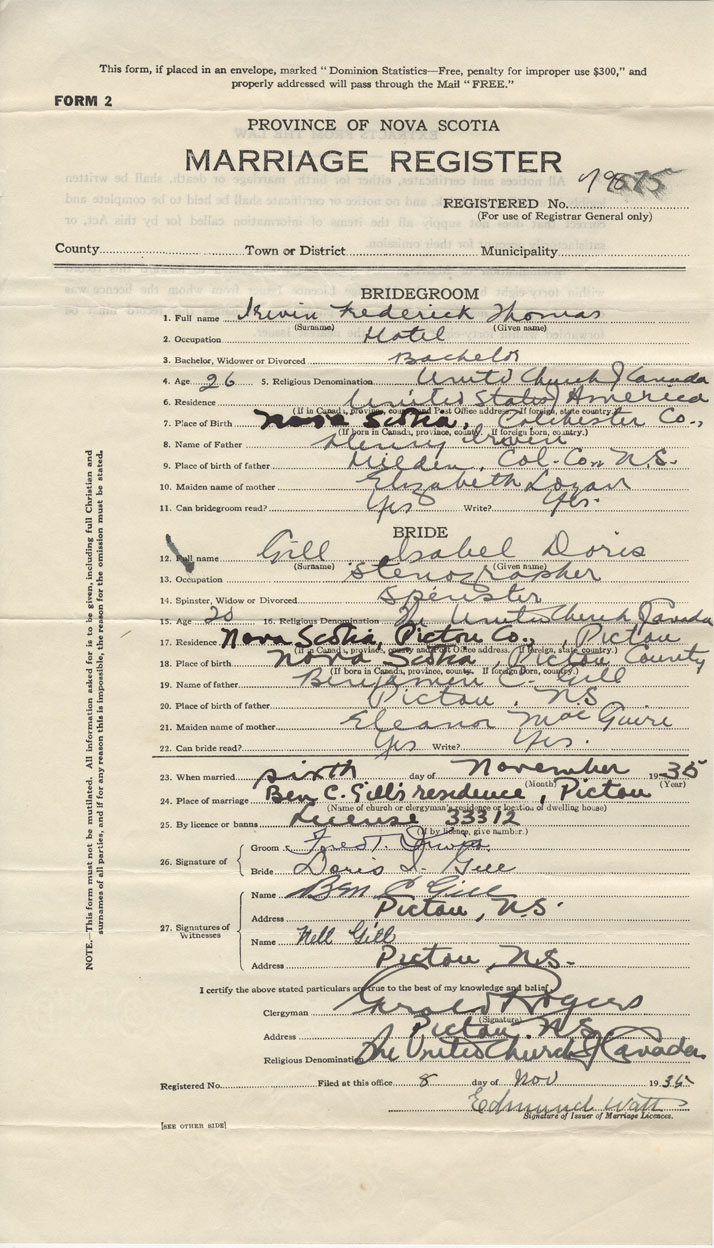 This form, if placed in an envelope, marked "Dominion Statistics—Free, penalty for improper use $300," and
properly addressed will pass through the Mail "FREE."
FORM 2
PROVINCE OF NOVA SCOTIA
MARRIAGE REGISTER
REGISTERED No.
(For use of Registrar General only)
County Town or District Municipality
BRIDEGROOM
1. Full name Irwin Frederick Thomas
(Surname) (Given name)
2. Occupation Hotel
3. Bachelor, Widower or Divorced Bachelor
4. Age 26 5. Religious Denomination United Church of Canada
6. Residence United States America
(If in Canada, province, county and Post Office address. If foreign, state country.)
7. Place of Birth Nova Scotia, Colchester Co.,
(If born in Canada, province, county. If foreign born, country.)
8. Name of Father Henry Irwin
9. Place of birth of father Col. Co. N.S.
10. Maiden name of mother Elizabeth Logan
11. Can bridegroom read? Yes Write? Yes.
BRIDE
12. Full name Gill Isabel Doris
(Surname) (Given name)
13. Occupation Stenographer
14. Spinster, Widow or Divorced Spinster
15. Age 20 16. Religious Denomination The United Church of Canada
17. Residence Nova Scotia, Pictou Co., Pictou
(If in Canada, province, county and Post Office address. If foreign, state country.)
18. Place of birth Nova Scotia, Pictou County
(If born in Canada, province, county. If foreign born, country.)
19. Name of father Benjamin C. Gill
20. Place of birth of father Pictou, N.S.
21. Maiden name of mother Eleanor MacGuire
22. Can bride read? Yes Write? Yes.
23. When married sixth day of November 1935
(Month) (Year)
24. Place of marriage Ben C. Gill's residence, Pictou
(Name of church or clergyman's residence or location of dwelling house)
25. By licence or banns License 33312
(If by licence, give number.)
26. Signature of
Groom Irwin
Bride Doris I. Gill
27. Signatures of Witnesses
Name Ben C Gill
Address Pictou, N.S.
Name Nell Gill
Address Pictou, N.S.
I certify the above stated particulars are true to the best of my knowledge and belief.
Clergyman Gerald Rogers
(Signature)
Address Pictou, N.S.
Religious Denomination The United Church of Canada
Registered No. Filed at this office 8 day of Nov 1935
Edmund Watt
Signature of Issuer of Marriage Licences.
[SEE OTHER SIDE]
NOTE.—This form must not be mutilated. All information asked for is to be given, including full Christian and
surnames of all parties, and if for any reason this is impossible, the reason for the omission must be stated.